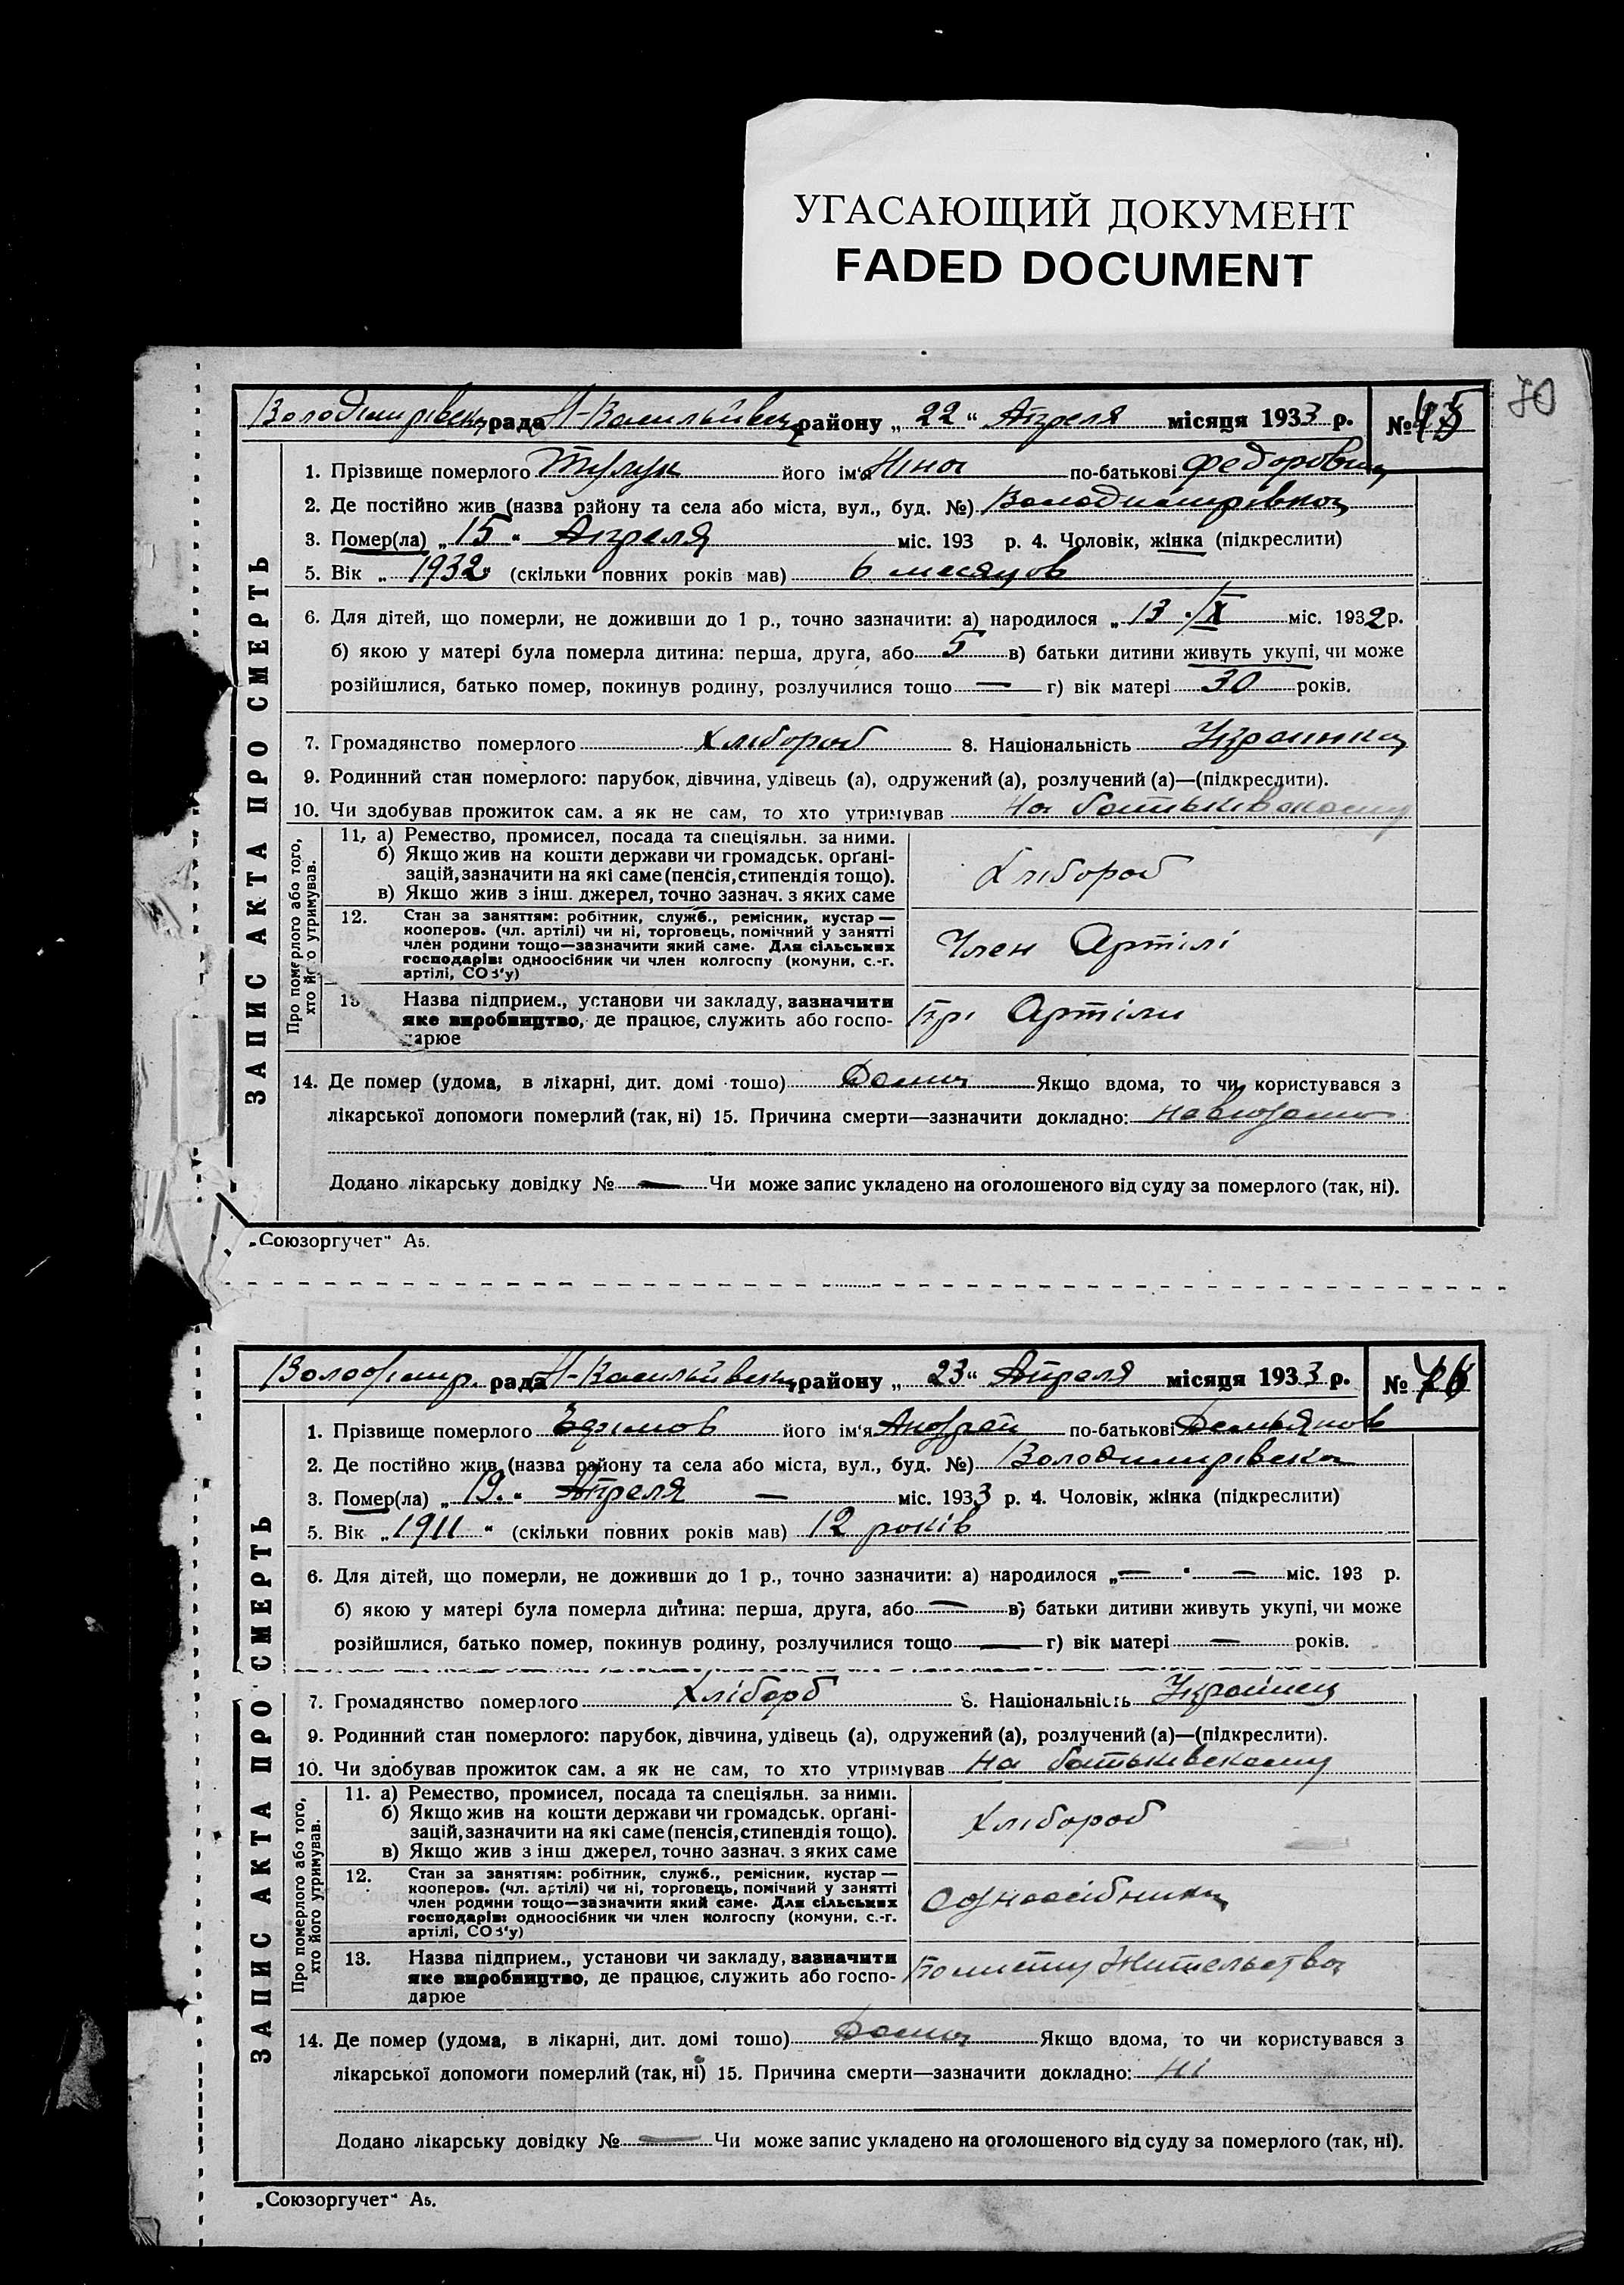 УГАСАЮЩИЙ ДОКУМЕНТ
FADED DOCUMENT
70
Володимрівск рада Н-Васильївск району „ 22 “ Апреля місяця 1933 р. №
1. Прізвище померлого його ім‘я Ніна по-батькові Федоровна
2. Де постійно жив (назва району та села або міста, вул., буд. №) Володимирівка
3. Помер(ла) „ 15 “ Апреля міс. 193 р. 4. Чоловік, жінка (підкреслити)
5. Вік „ 1932 (скільки повних років мав) 6 месяцов
6. Для дітей, що померли, не доживши до 1 р., точно зазначити: а) народилося „ 13 “ міс. 1932 р.
б) якою у матері була померла дитина: перша, друга, або 5 в) батьки дитини живуть укупі, чи може
розійшлися, батько помер, покинув родину, розлучилися тощо — г) вік матері 30 років.
7. Громадянство померлого Хлібороб 8. Національність Украинка
9. Родинний стан померлого: парубок, дівчина, удівець (а), одружений (а), розлучений (а)—(підкреслити).
10. Чи здобував прожиток сам, а як не сам, то хто утримував на батьківскому
ЗАПИС АКТА ПРО СМЕРТЬ
Про померлого або того, хто його утримував.
11. а) Ремество, промисел, посада та спеціяльн. за ними.
б) Якщо жив на кошти держави чи громадськ. орґані-
зацій, зазначити на які саме (пенсія, стипендія тощо).
в) Якщо жив з інш. джерел, точно зазнач. з яких саме
Хлібороб
12. Стан за заняттям: робітник, служб., ремісник, кустар —
кооперов. (чл. артілі) чи ні, торговець, помічний у занятті
член родини тощо—зазначити який саме. Для сільських
господарів: одноосібник чи член колгоспу (комуни, с.-г.
артілі, СОЗ‘у)
Член Артілі
13 Назва підприєм., установи чи закладу, зазначити
яке виробництво, де працює, служить або госпо-
дарює
прі Артіли
14. Де помер (удома, в ліхарні, дит. домі тошо) Дома Якщо вдома, то чи користувався з
лікарської допомоги померлий (так, ні) 15. Причина смерти—зазначити докладно:
Додано лікарську довідку № — Чи може запис укладено на оголошеного від суду за померлого (так, ні).
„Союзоргучет“ А5.
Володімир. рада Н-Васильївск району „ 23 “ Апреля місяця 1933 р. №
1. Прізвище померлого Ефімов його ім‘я Андрей по-батькові Демьянов
2. Де постійно жив (назва району та села або міста, вул., буд. №) Володимирівска
3. Помер(ла) „ 19. “ Апреля — міс. 1933 р. 4. Чоловік, жінка (підкреслити)
5. Вік „ 1911 “ (скільки повних років мав) 12 років
6. Для дітей, що померли, не доживши до 1 р., точно зазначити: а) народилося „ — “ — міс. 193 р.
б) якою у матері була померла дитина: перша, друга, або — в) батьки дитини живуть укупі, чи може
розійшлися, батько помер, покинув родину, розлучилися тощо — г) вік матері — років.
7. Громадянство померлого Хліборб 8. Національність Украінец
9. Родинний стан померлого: парубок, дівчина, удівець (а), одружений (а), розлучений (а)—(підкреслити).
10. Чи здобував прожиток сам, а як не сам, то хто утримував на батьківскому
ЗАПИС АКТА ПРО СМЕРТЬ
Про померлого або того, хто його утримував.
11. а) Ремество, промисел, посада та спеціяльн. за ними.
б) Якщо жив на кошти держави чи громадськ. орґані-
зацій, зазначити на які саме (пенсія, стипендія тощо).
в) Якщо жив з інш джерел, точно зазнач. з яких саме
Хлібороб
12. Стан за заняттям: робітник, служб., ремісник, кустар —
кооперов. (чл. артілі) чи ні, торговець, помічний у занятті
член родини тощо—зазначити який саме. Для сільських
господарів: одноосібник чи член колгоспу (комуни, с.-г.
артілі, СОЗ‘у)
Одноосібника
13. Назва підприєм., установи чи закладу, зазначити
яке виробництво, де працює, служить або госпо-
дарює
По мисту Жительства
14. Де помер (удома, в лікарні, дит. домі тошо) Дома Якщо вдома, то чи користувався з
лікарської допомоги померлий (так, ні) 15. Причина смерти—зазначити докладно: Ні
Додано лікарську довідку № — Чи може запис укладено на оголошеного від суду за померлого (так, ні).
„Союзоргучет“ А5.